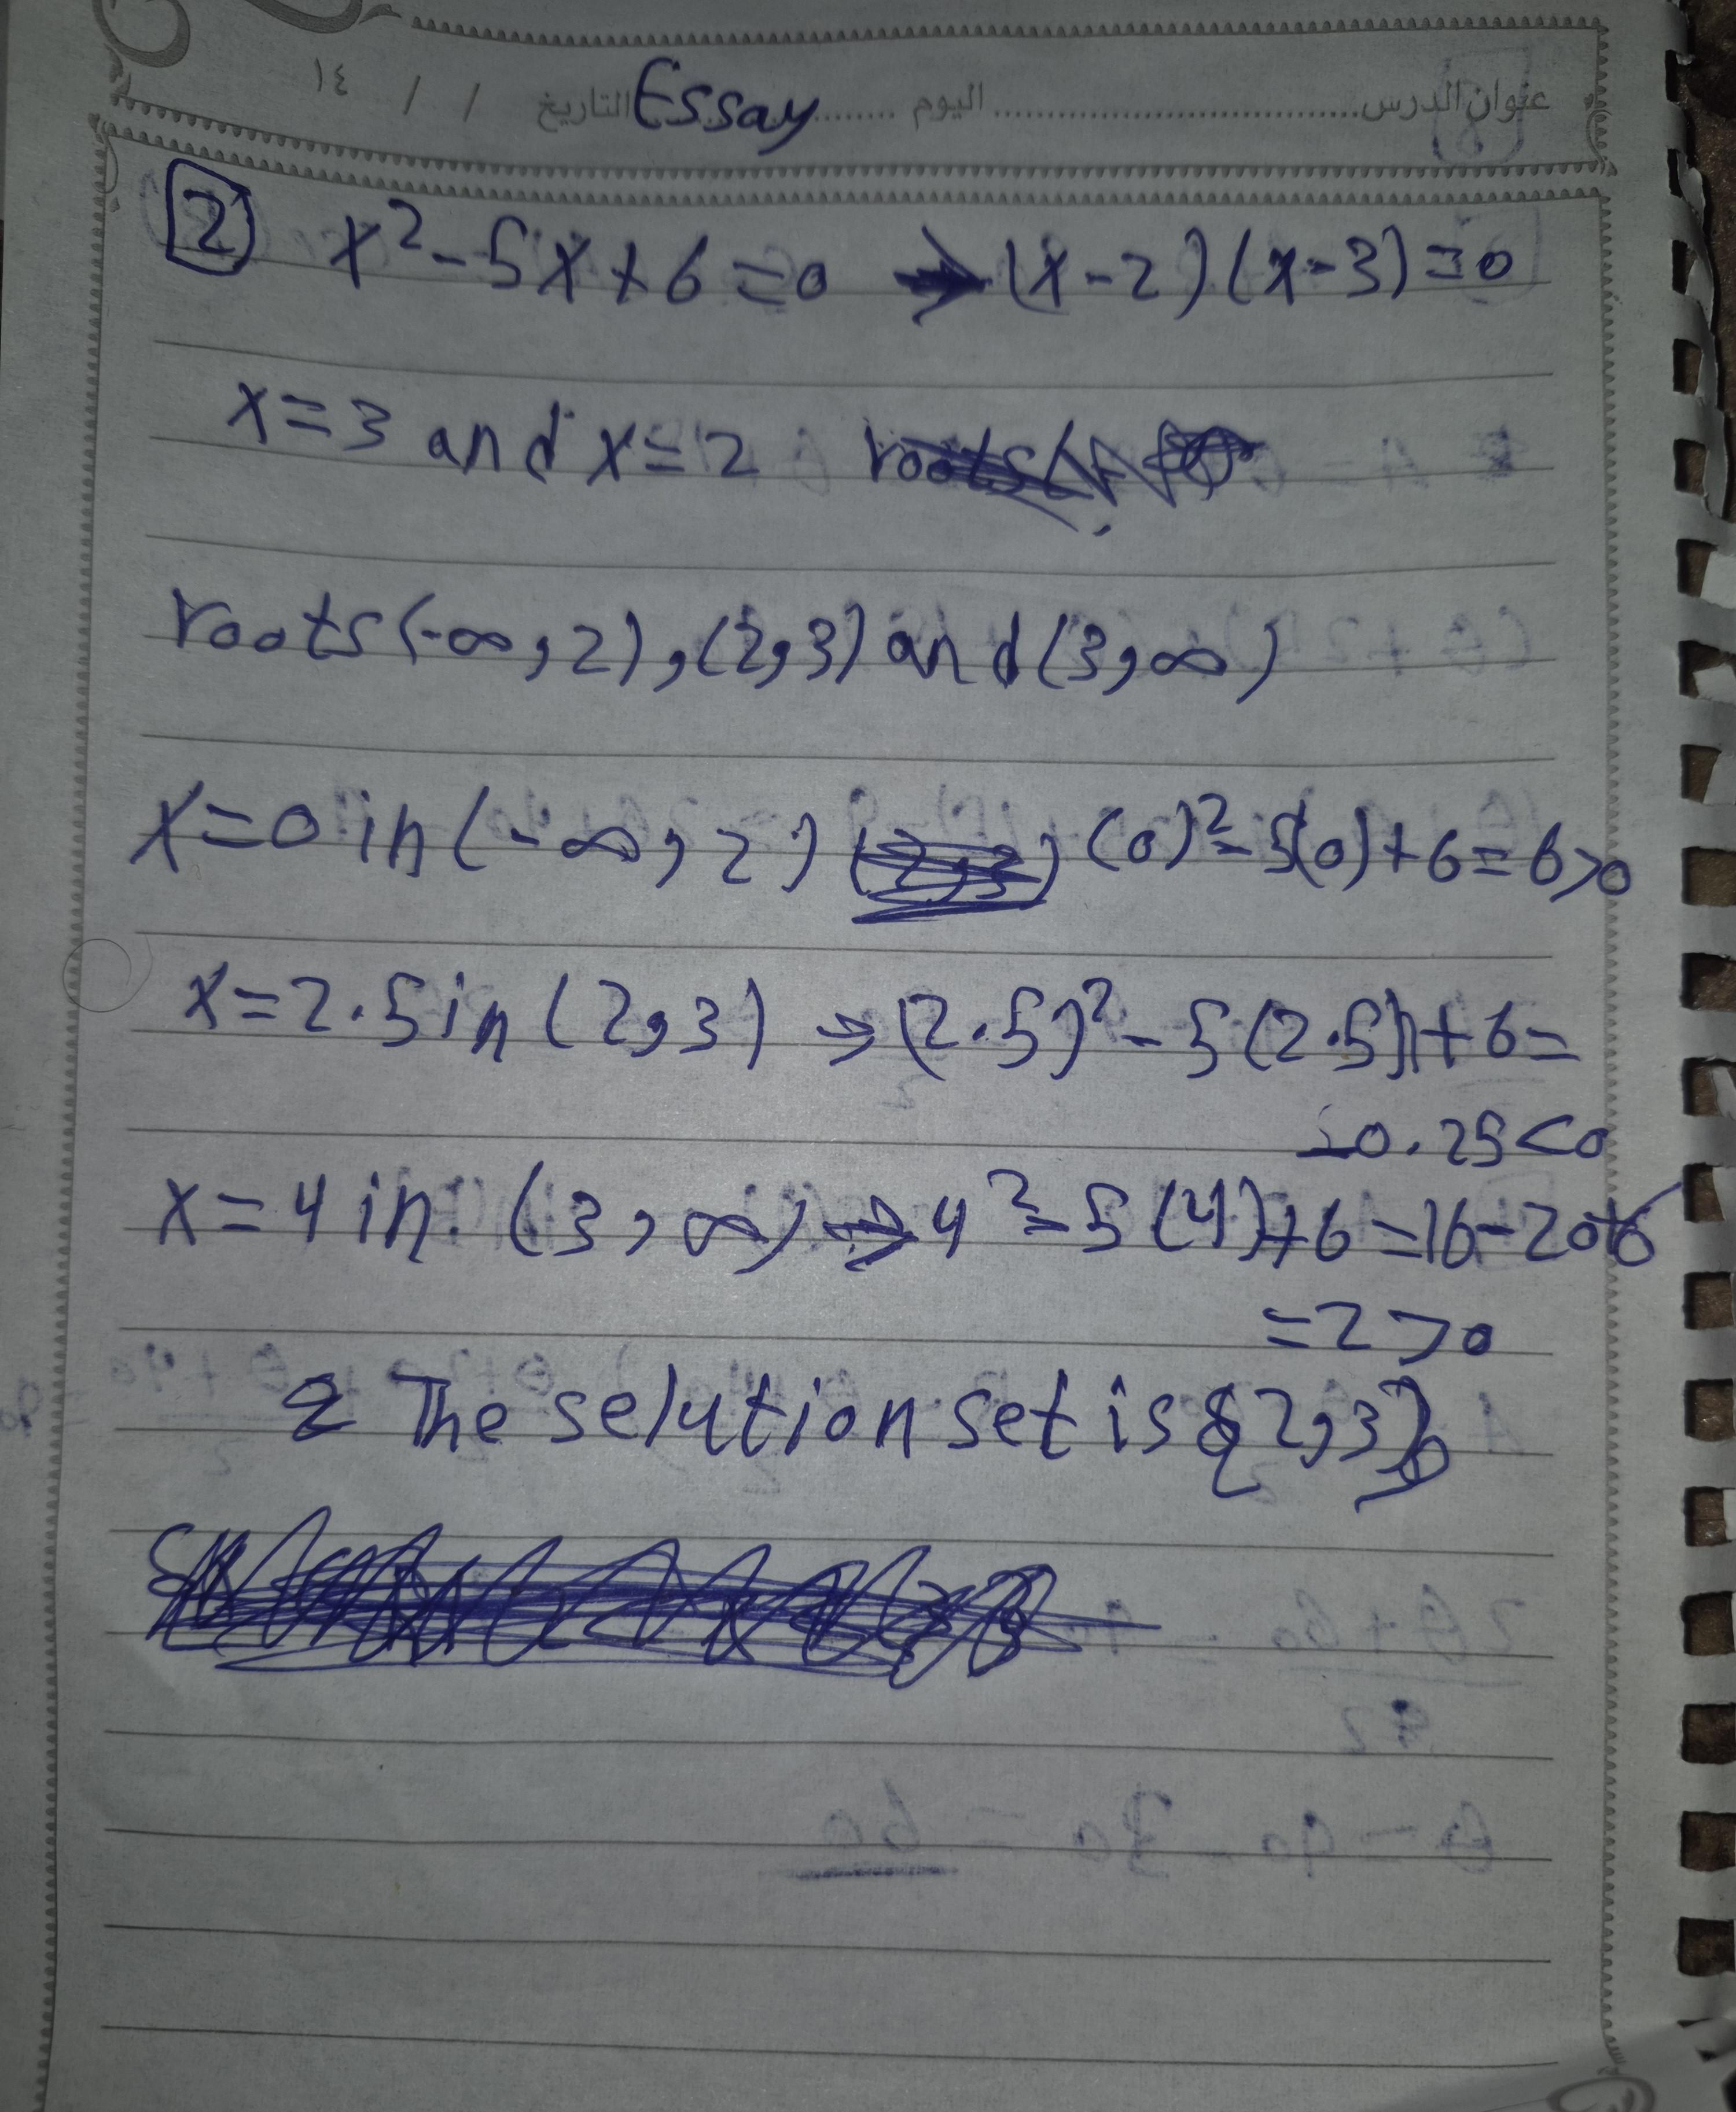 عنوان الدرس ........ اليوم ........ التاريخ / / ١٤
Essay
2 x² - 5x + 6 = 0 → (x-2)(x-3) = 0
x = 3 and x = 2
roots (-∞, 2), (2, 3) and (3, ∞)
x = 0 in (-∞, 2) (0)² - 5(0) + 6 = 6 > 0
x = 2.5 in (2, 3) → (2.5)² - 5(2.5) + 6 =
-0.25 < 0
x = 4 in (3, ∞) → 4² - 5(4) + 6 = 16 - 20 + 6
= 2 > 0
The selution set is {2, 3}